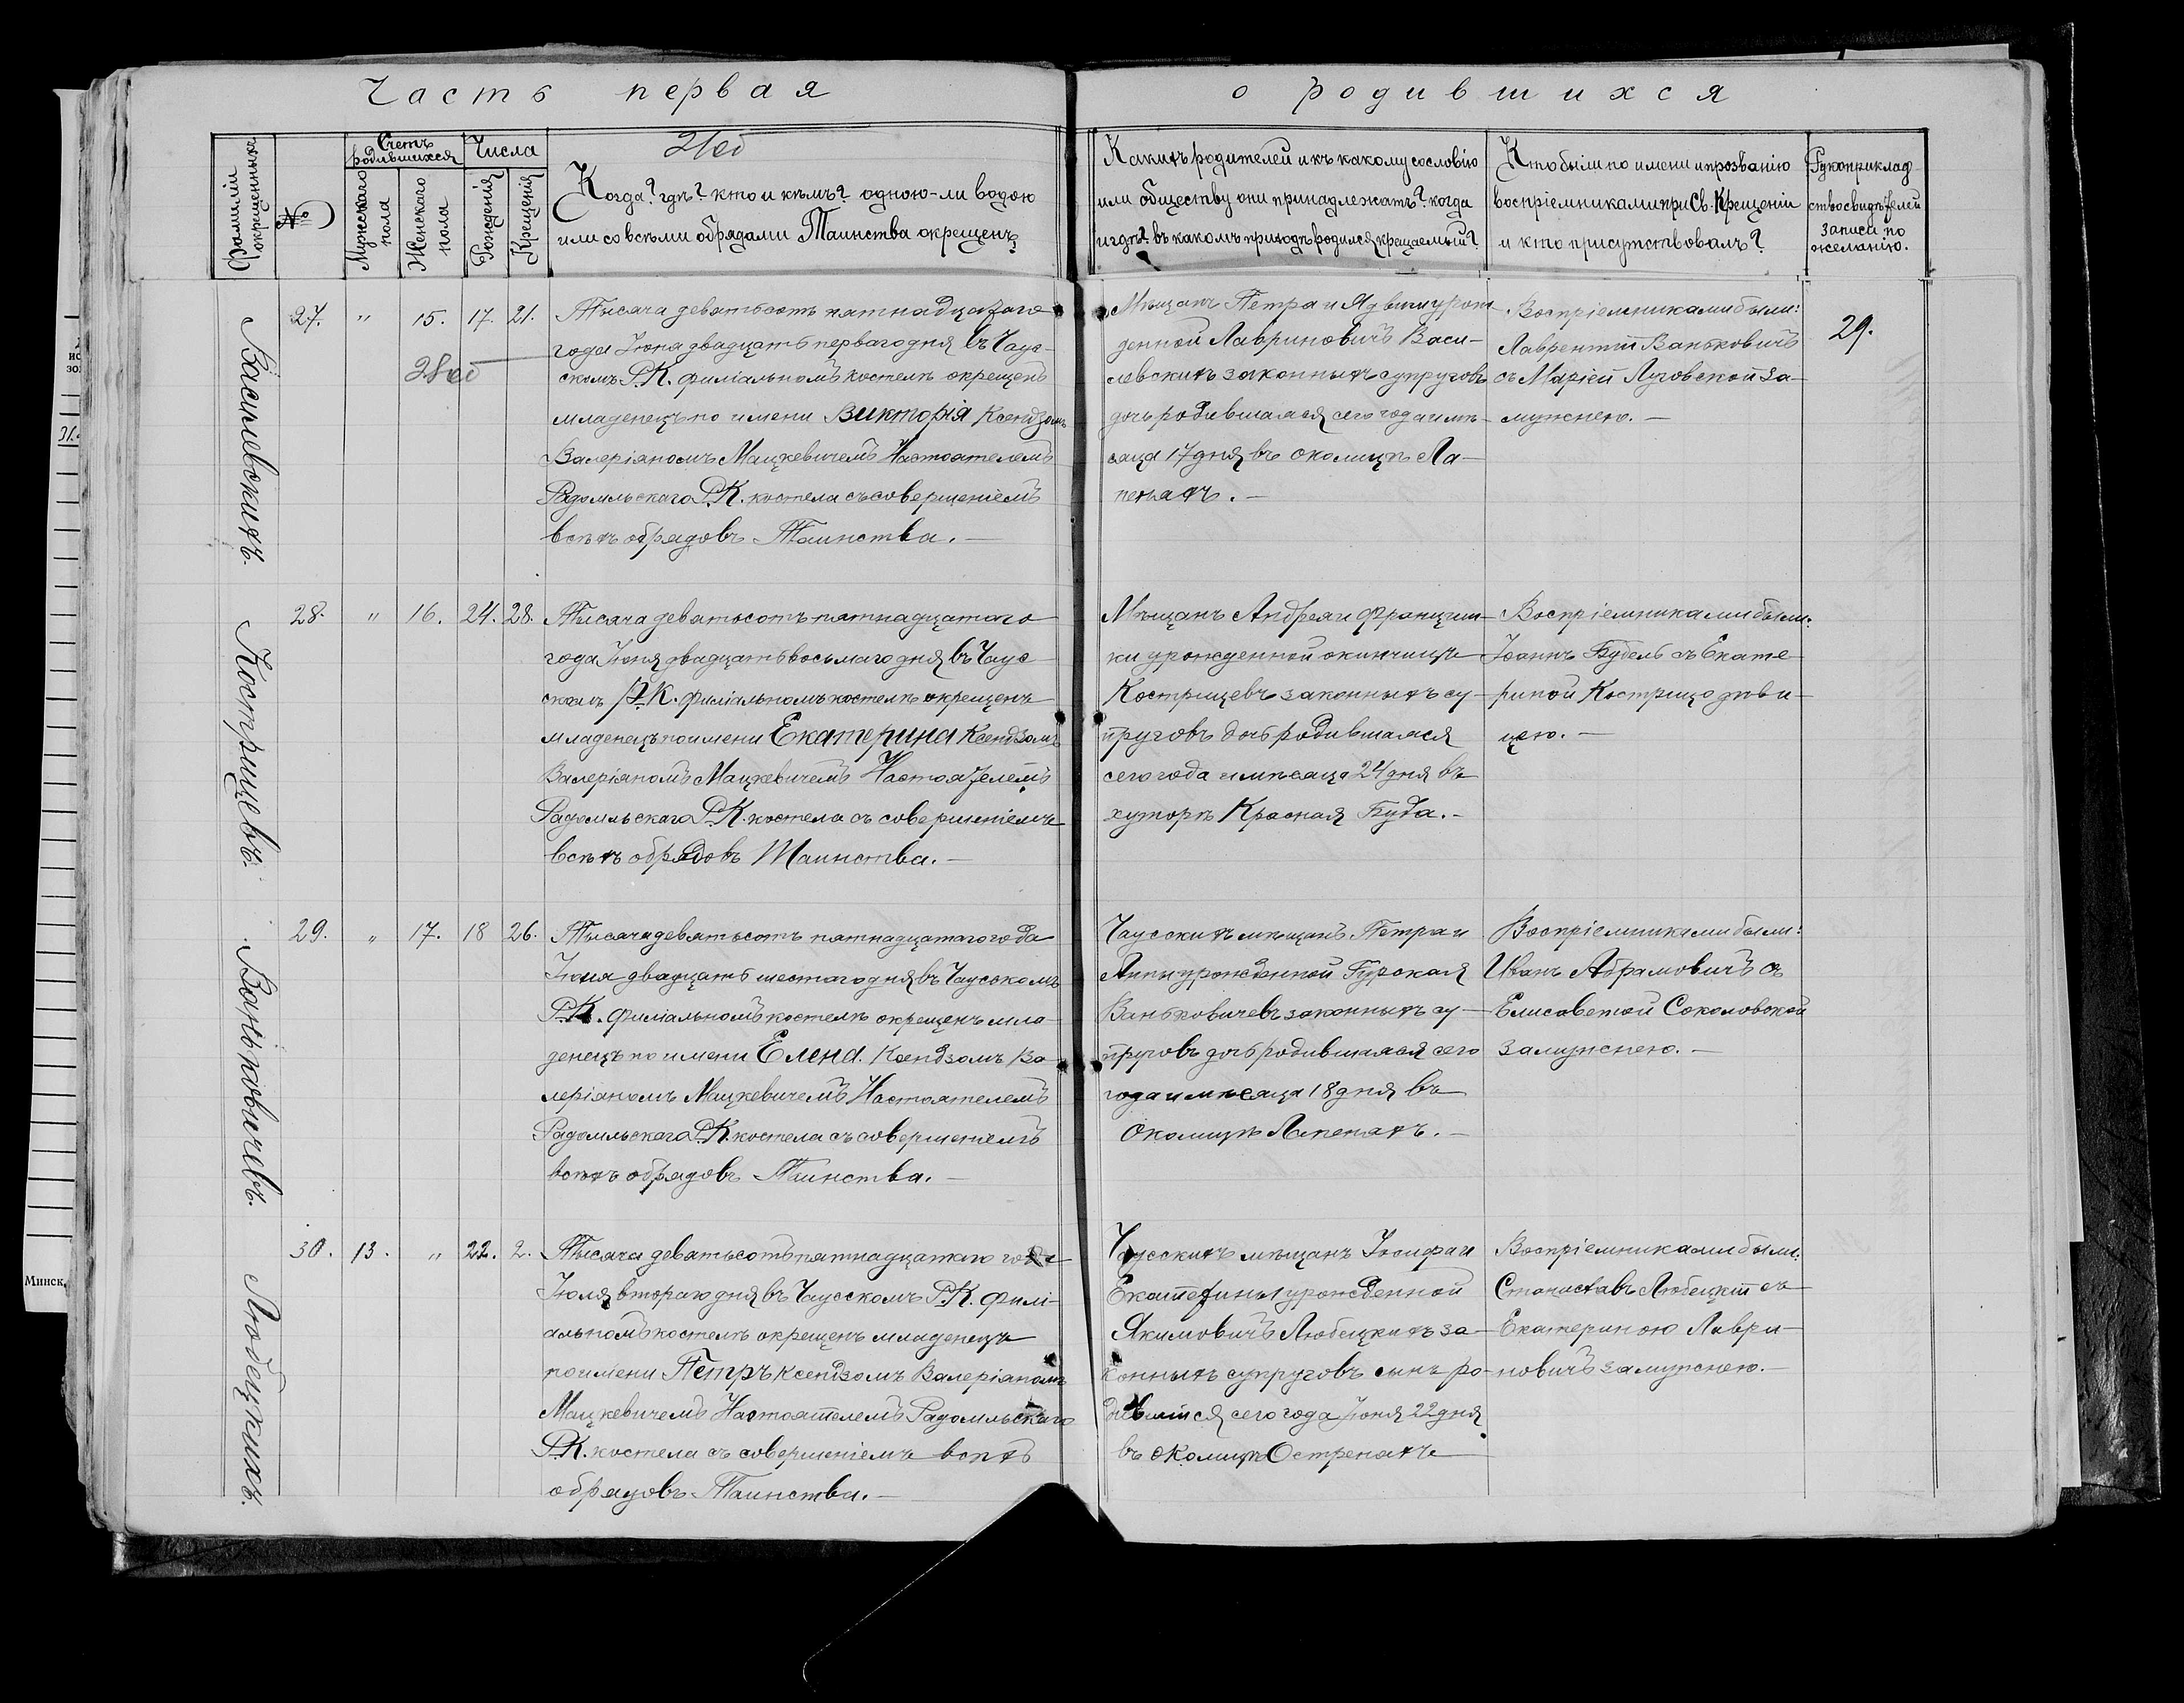 Часть первая
о родившихся
Фамиліи окрещенныхъ
№
Счетъ родившихся
Мужскаго пола
Женскаго пола
Числа
Рожденія
Крещенія
Когда? гдѣ? кто и кѣмъ? одною-ли водою
или со всѣми обрядами Таинства окрещенъ?
Какихъ родителей и къ какому сословію
или обществу они принадлежатъ? когда
и гдѣ? въ какомъ приходѣ родился крещаемый?
Кто были по имени и прозванію
воспріемниками при Св. Крещеніи
и кто присутствовалъ?
Рукоприклад-
ство свидѣтелей
записи по
желанію.
Василевскихъ.
27. " 15. 17. 21.
Тысяча девятьсотъ пятнадцатаго
года Іюня двадцать перваго дня въ Чаус-
скомъ Р.К. филіальномъ костелѣ окрещенъ
младенецъ по имени Викторія Ксендзомъ
Валеріаномъ Мацкевичемъ Настоятелемъ
Радомльскаго Р.К. костела съ совершеніемъ
всѣхъ обрядовъ Таинства. —
Мѣщанъ Петра и Ядвиги урож
денной Лавриновичъ Васи-
левскихъ законныхъ супруговъ
дочь родившаяся сего года и мѣ-
сяца 17 дня въ околицѣ Ла-
пеняхъ. —
Воспріемниками были:
Лаврентій Ваньковичъ
съ Маріей Луговской за-
мужнею. —
29.
Кострицевъ.
28. " 16. 24. 28.
Тысяча девятьсотъ пятнадцатаго
года Іюня двадцать восьмаго дня въ Чаус-
скомъ Р.К. филіальномъ костелѣ окрещенъ
младенецъ по имени Екатерина Ксендзомъ
Валеріаномъ Мацкевичемъ Настоятелемъ
Радомльскаго Р.К. костела съ совершеніемъ
всѣхъ обрядовъ Таинства. —
Мѣщанъ Андрея и Франциш-
ки урожденной
Кострицевъ законныхъ су-
пруговъ дочь родившаяся
сего года и мѣсяца 24 дня въ
хуторѣ Красная Буда. —
Воспріемниками были:
Іоаннъ Будель съ Екате-
риной Кострицо дѣви-
цею. —
Ваньковичевъ.
29. " 17. 18 26.
Тысяча девятьсотъ пятнадцатаго года
Іюня двадцать шестаго дня въ Чаусскомъ
Р.К. филіальномъ костелѣ окрещенъ мла-
денецъ по имени Елена. Ксендзомъ Ва-
леріаномъ Мацкевичемъ Настоятелемъ
Радомльскаго Р.К. костела съ совершеніемъ
всѣхъ обрядовъ Таинства. —
Чаусскихъ мѣщанъ Петра и
Анны урожденной Бурская
Ваньковичевъ законныхъ су-
пруговъ дочь родившаяся сего
года и мѣсяца 18 дня въ
Околицѣ Лапеняхъ. —
Воспріемниками были:
Иванъ Абрамовичъ съ
Елисаветой Соколовской
замужнею. —
Любецкихъ.
30. 13. " 22. 2.
Тысяча девятьсотъ пятнадцатаго года
Іюля втораго дня въ Чаусскомъ Р.К. филі-
альномъ костелѣ окрещенъ младенецъ
по имени Петръ Ксендзомъ Валеріаномъ
Мацкевичемъ Настоятелемъ Радомльскаго
Р.К. костела съ совершеніемъ всѣхъ
обрядовъ Таинства. —
Чаусскихъ мѣщанъ Іосифа и
Екатерины урожденной
Якимовичъ Любецкихъ за-
конныхъ супруговъ сынъ ро-
дившійся сего года Іюня 22 дня
въ околицѣ Остреняхъ
Воспріемниками были:
Станиславъ Любецкій съ
Екатериною Лаври-
новичъ замужнею. —
Минск,